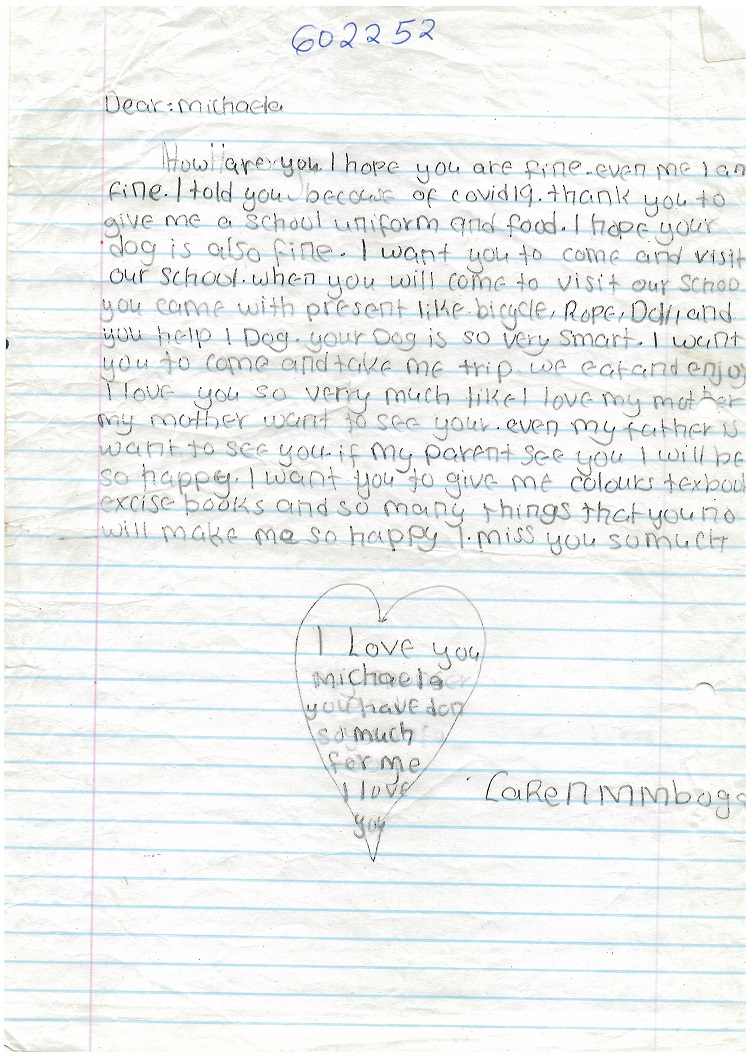 602252
Dear: michaela
How are you. I hope you are fine. even me I am
fine. I told you because of covid19. thank you to
give me a school uniform and food. I hope your
dog is also fine. I want you to come and visit
our school. when you will come to visit our schoo
you came with present like bicycle, Rope, Doll, and
you help I Dog. your Dog is so very smart. I want
you to come and take me trip we eat and enjoy
I love you so verry much like I love my mother
my mother want to see your. even my father is
want to see you. if my parent see you I will be
so happy. I want you to give me colours texboo
excise books and so many things that you no
will make me so happy I. miss you so much
I Love you
michaela
you have don
so much
for me
I love
you
Caren MMboga